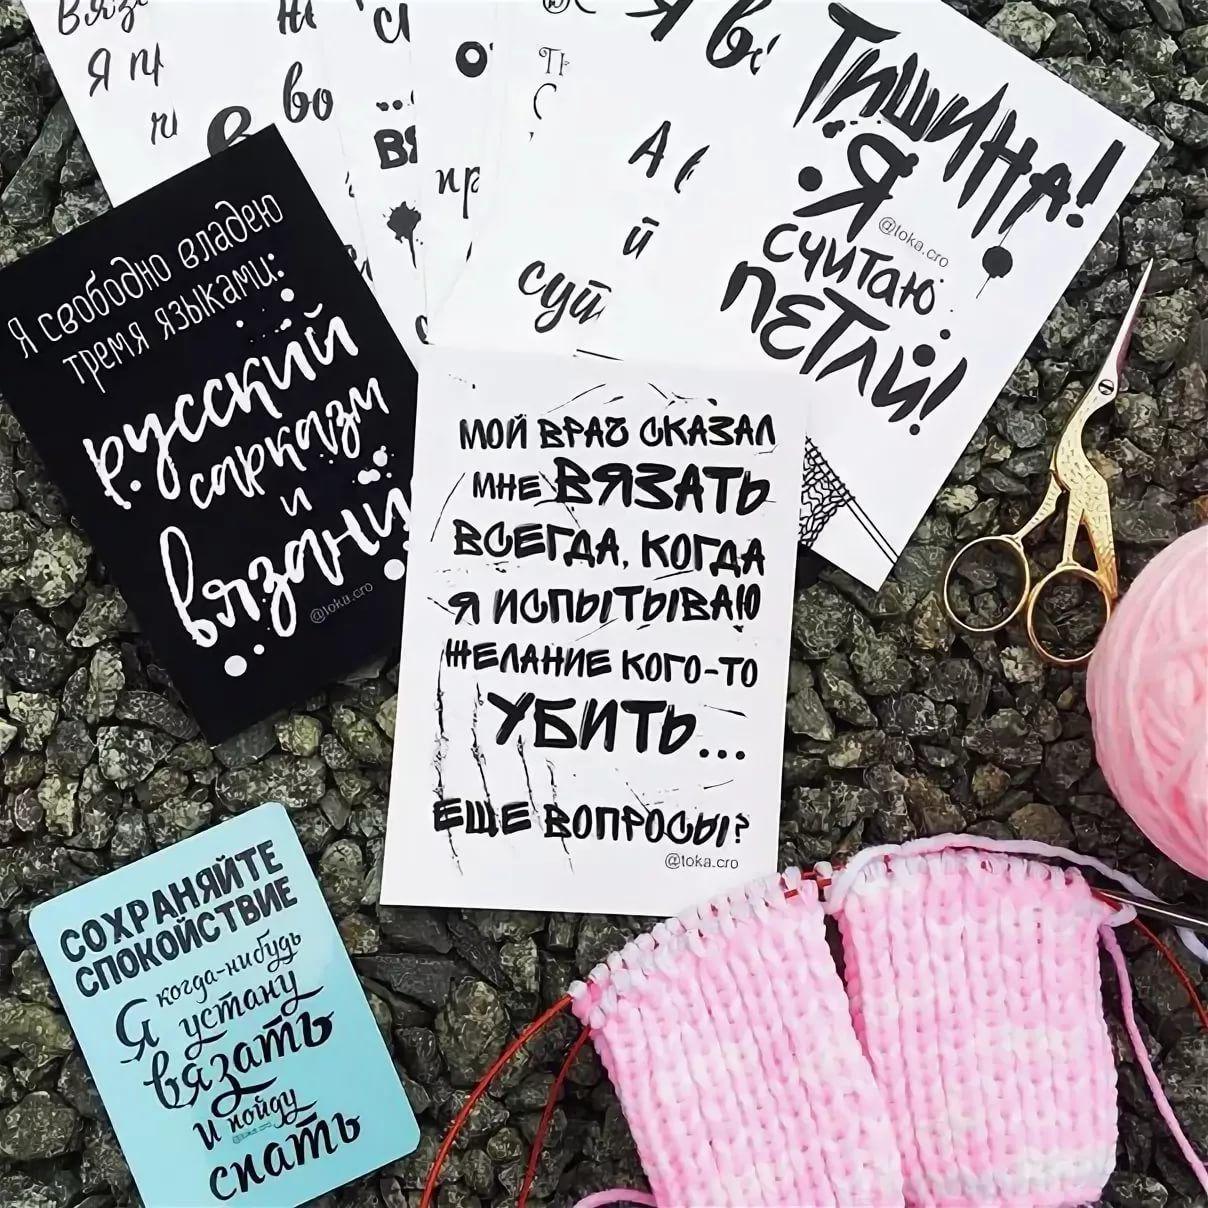 Я
во
А
й
суй
ТИШИНА!
Я
@toka.cro
СЧИТАЮ
ПЕТЛИ!
Я свободно владею
тремя языками:
русский
сарказм
и
@toka.cro
МОЙ ВРАЧ СКАЗАЛ
МНЕ ВЯЗАТЬ
ВСЕГДА, КОГДА
Я ИСПЫТЫВАЮ
ЖЕЛАНИЕ КОГО-ТО
УБИТЬ...
ЕЩЕ ВОПРОСЫ?
@toka.cro
СОХРАНЯЙТЕ
СПОКОЙСТВИЕ
когда-нибудь
Я устану
вязать
и пойду
спать